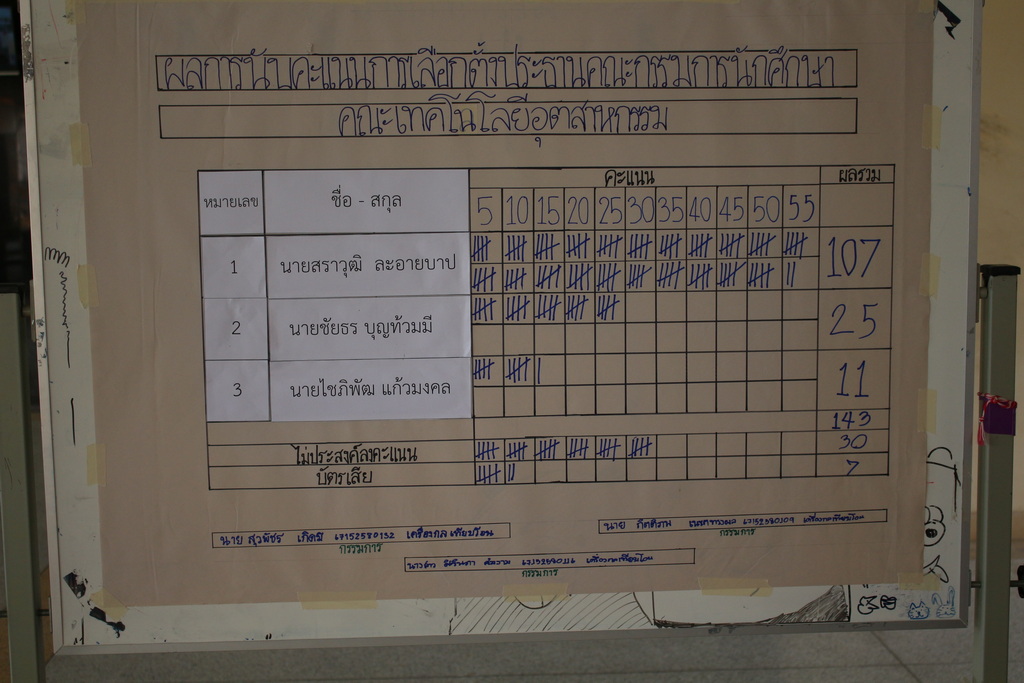 ผลการนับคะแนนการเลือกตั้งประธานคณะกรรมการนักศึกษา
คณะเทคโนโลยีอุตสาหกรรม
หมายเลข ชื่อ - สกุล คะแนน ผลรวม
5 10 15 20 25 30 35 40 45 50 55
1 นายสราวุฒิ ละอายบาป 107
2 นายชัยธร บุญท้วมมี 25
3 นายไชภิพัฒ แก้วมงคล 11
143
ไม่ประสงค์ลงคะแนน 30
บัตรเสีย 7
นาย สุวพัชร เกิดมี
กรรมการ
นาย
กรรมการ
กรรมการ